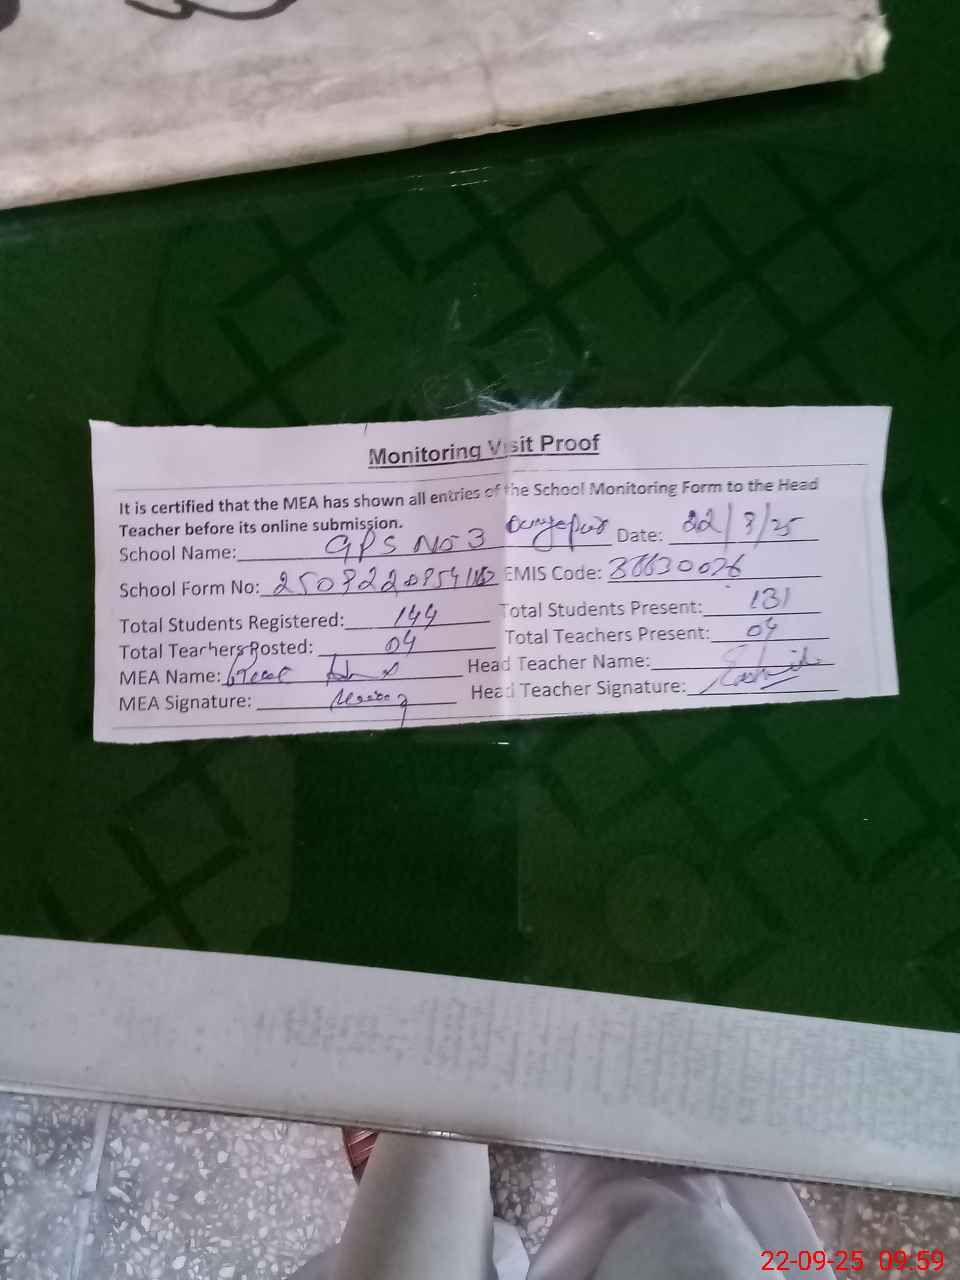 Monitoring Visit Proof
It is certified that the MEA has shown all entries of the School Monitoring Form to the Head
Teacher before its online submission.
School Name: GPS No 3 Date: 22/9/25
School Form No: EMIS Code:
Total Students Registered: 144 Total Students Present: 131
Total Teachers Posted: 04 Total Teachers Present: 04
MEA Name: Head Teacher Name:
MEA Signature: Head Teacher Signature:
22-09-25 09:59